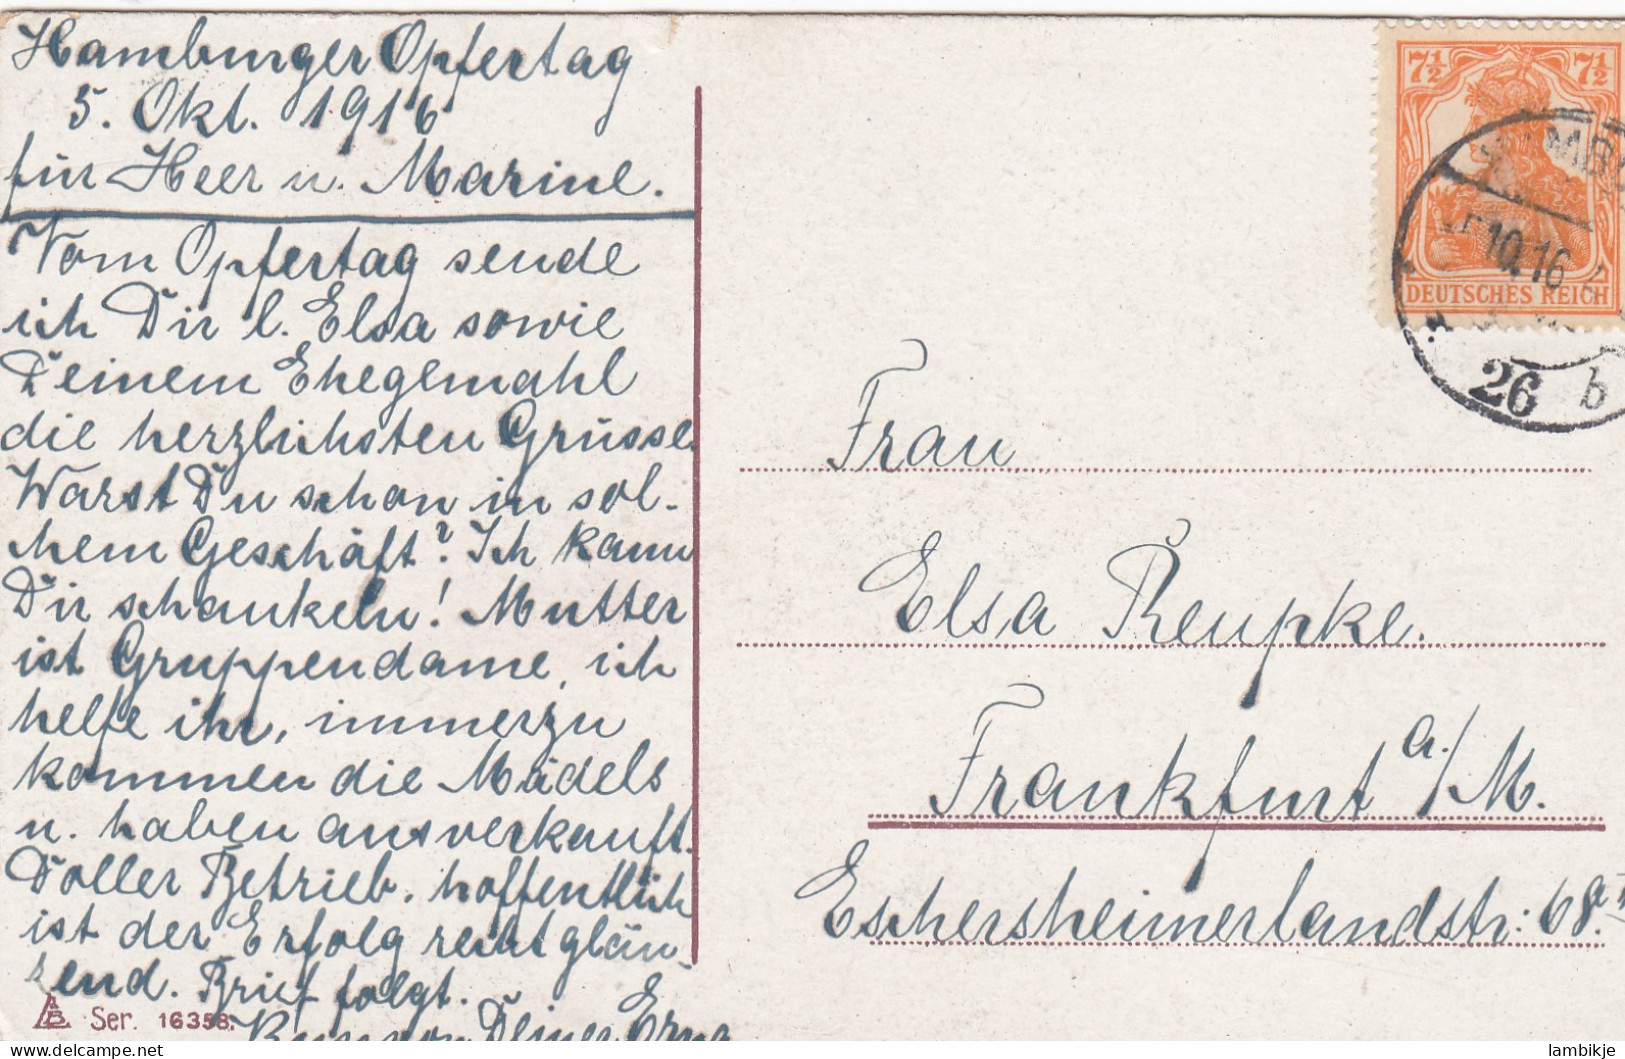 Hamburger Opfertag
5. Okt. 1916
für Heer u. Marine.
Vom Opfertag sende
ich Dir l. Elsa sowie
Deinem Ehegemahl
die herzlichsten Grüsse.
Warst Du schon in sol-
chem Geschäft? Ich kann
Dir schaukeln! Mutter
ist Gruppendame, ich
helfe ihr, immerzu
kommen die Mädels
u. haben ausverkauft.
Doller Betrieb. hoffentlich
ist der Erfolg recht glän-
zend. Brief folgt.
von Deiner Erna
Ser. 16358.
7½ 7½
DEUTSCHES REICH
5.10.16
26 b
Frau
Elsa Reupke.
Frankfurt a/M.
Eschersheimerlandstr: 68.
lambikje